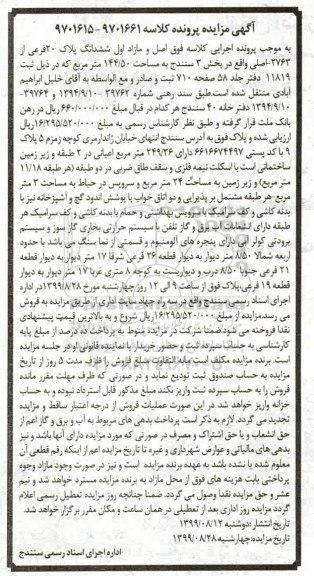 آگهی مزایده پرونده کلاسه ۹۷۰۱۶۶۱ - ۹۷۰۱۶۱۵
به موجب پرونده اجرایی کلاسه فوق اصل و مازاد اول ششدانگ پلاک ۲۰فرعی از
۲۷۶۳-اصلی واقع در بخش ۳ سنندج به مساحت ۱۴۴/۵۰ متر مربع که در ذیل ثبت
۱۱۸۱۹ دفتر جلد ۵۸ صفحه ۷۱۰ ثبت و صادر و مع الواسطه به آقای خلیل ابراهیم
آبادی منتقل شده است.طبق سند رهنی شماره ۳۹۷۶۲ -۱۳۹۴/۰۹/۱۰ و ۳۹۷۶۴-
۱۳۹۴/۰۹/۱۰ دفتر خانه ۴۰ سنندج هر کدام در قبال مبلغ ۶۶۰/۰۰۰/۰۰۰ ریال در رهن
بانک ملت قرار گرفته و طبق نظر کارشناس رسمی به مبلغ ۱۶/۲۹۵/۵۲۰/۰۰۰ریال
ارزیابی شده و پلاک فوق به آدرس سنندج انتهای خیابان ژاندارمری کوچه زمزم ۵ پلاک
۹ با کد پستی ۶۶۱۶۶۷۴۴۹۷ دارای ۲۴۹/۳۶ متر مربع اعیانی در ۲ طبقه و زیر زمین
ساختمانی است با اسکلت نیمه فلزی و سقف طاق ضربی در دو طبقه (هر طبقه ۱۱/۱۸
متر مربع) و زیر زمین به مساحت ۲۴ متر مربع و سرویس در حیاط به مساحت ۳ متر
مربع-هر طبقه مشتمل بر پذیرایی و دو اتاق خواب با پوشش اندود گچ و آشپزخانه نیز با
بدنه کاشی و کف سرامیک با سرویس بهداشتی و حمام با بدنه کاشی و کف سرامیک هر
طبقه دارای انشعابات آب برق و گاز تلفن با سیستم حرارتی بخاری گاز سوز و سیستم
برودتی کولر آبی دارای پنجره های آلومنیوم و قسمتی از نما سنگ می باشد با حدود
اربعه شمالا ۸/۵۰ متر دیوار به دیوار قطعه ۲۶ فرعی شرقا ۱۷ متر دیوار به دیوار قطعه
۲۱ فرعی جنوبا ۸/۵۰ درب و دیواریست به کوچه ۸ متری غربا ۱۷ متر دیوار به دیوار
قطعه ۱۹ فرعی.پلاک فوق از ساعت ۹ الی ۱۲ روز چهارشنبه مورخ ۱۳۹۹/۸/۲۸در اداره
اجرای اسناد رسمی سنندج واقع در سه راه جهاد سایت اداری از طریق مزایده به فروش
می رسد.مزایده از مبلغ ۱۶/۲۹۵/۵۲۰/۰۰۰ریال شروع و به بالاترین قیمت پیشنهادی
نقدا فروخته می شود.ضمنا شرکت در مزایده منوط به پرداخت ده درصد از مبلغ پایه
کارشناسی به حساب سپرده ثبت و حضور خریدار یا نماینده قانونی او در جلسه مزایده
است. برنده مزایده مکلف است مابه التفاوت مبلغ فروش را ظرف مدت ۵ روز از تاریخ
مزایده به حساب صندوق ثبت تودیع نماید و در صورتی که ظرف مهلت مقرر مانده
فروش را به حساب سپرده ثبت واریز نکند مبلغ مذکور قابل استرداد نبوده و به حساب
خزانه واریز خواهد شد.در این صورت عملیات فروش از درجه اعتبار ساقط و مزایده
تجدید می گردد. لازم به ذکر است پرداخت بدهی های مربوط به آب و برق و گاز اعم از
حق انشعاب و یا حق اشتراک و مصرف در صورتی که مورد مزایده دارای آنها باشد و نیز
بدهی های مالیاتی و عوارض شهرداری و غیره تا تاریخ مزایده اعم از اینکه رقم قطعی آن
معلوم شده یا نشده باشد به عهده برنده مزایده است و نیز در صورت وجود مازاد وجوه
پرداختی بابت هزینه های فوق از محل مازاد به برنده مزایده مسترد خواهد شد و نیم
عشر و حق مزایده نقدا وصول می گردد. ضمنا چنانچه روز مزایده تعطیل رسمی اعلام
گردد مزایده روز اداری بعد از تعطیلی در همان ساعت و مکان مقرر برگزار خواهد شد.
تاریخ انتشار :دوشنبه ۱۳۹۹/۰۸/۱۲
تاریخ مزایده:چهارشنبه ۱۳۹۹/۰۸/۲۸
اداره اجرای اسناد رسمی سنندج